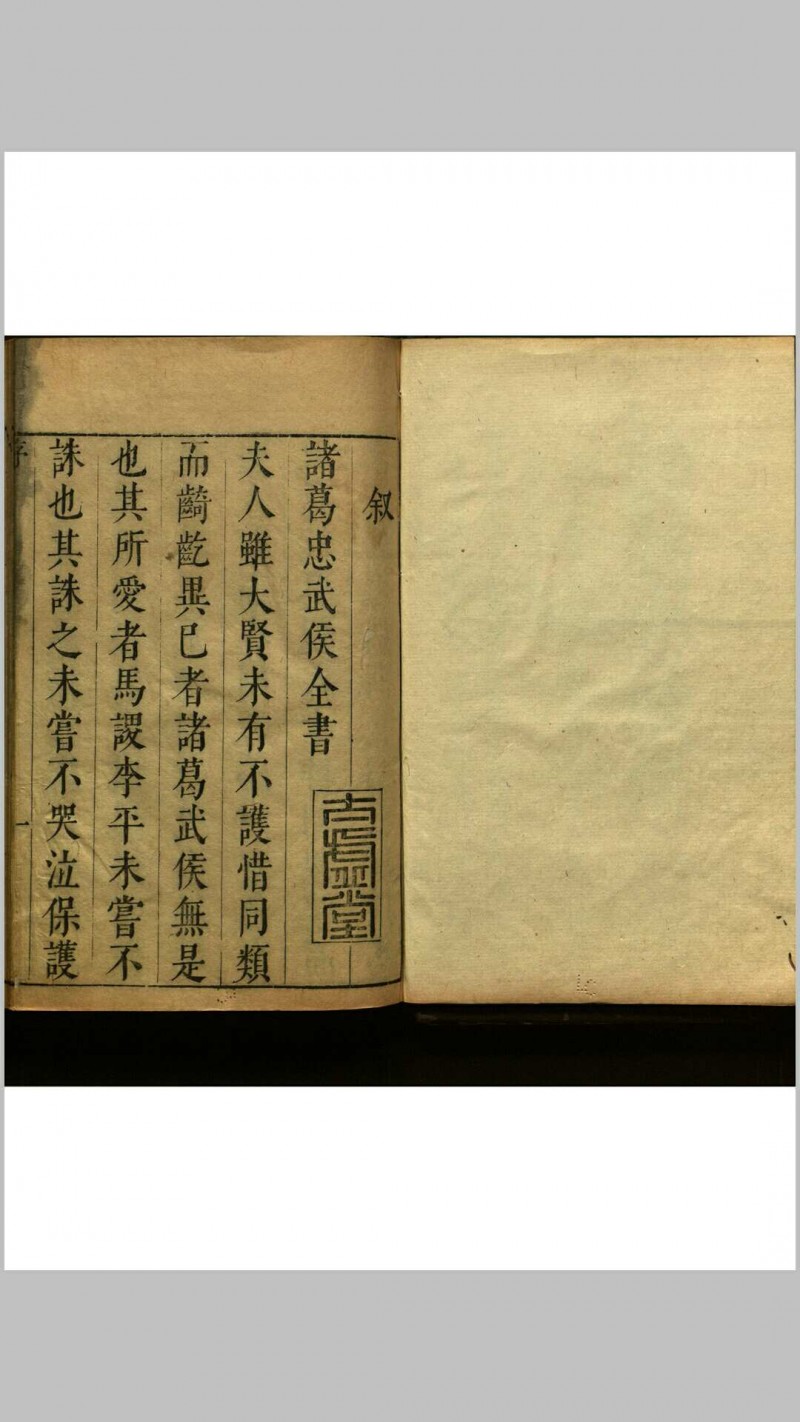 叙
諸葛忠武侯全書
夫人雖大賢未有不護惜同類
而齮齕異已者諸葛武侯無是
也其所愛者馬謖李平未嘗不
誅也其誅之未嘗不哭泣保護
序 一